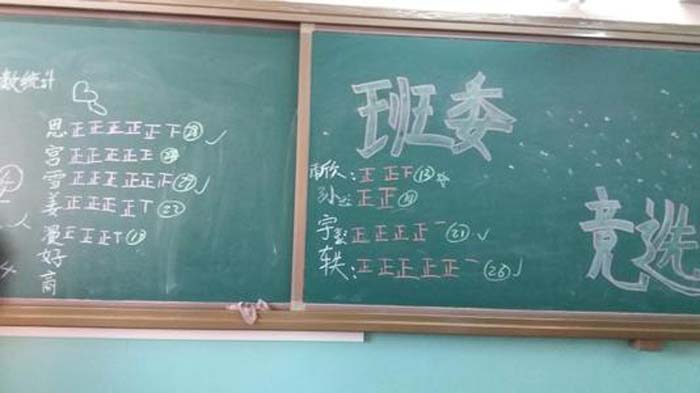 数统计
思 正正正正正下 28
宫 正正正正正
雪 正正正正正丅 27
姜 正正正正丅 22
漫 正正正丅
好
高
班委
欣: 正正下 13
孙 正正
宇 正正正正一 21
轶: 正正正正正一 26
竞选